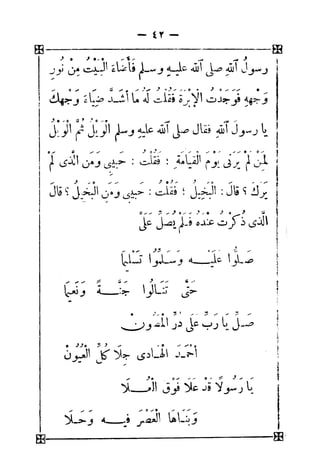 — ٤٢ —
رسولُ آللهِ صلى آلله عليه وسلم فأضاءَ البيتُ مِنْ نُورِ
وَجْههِ فَوَجدْتُ الإبرةَ فقُلْتُ لهُ مَا أشدَّ ضِياءَ وَجْهِكَ
يا رسولَ آللهِ فقال صلى آلله عليه وسلم الْوَيْلُ ثمَّ الْوَيْلُ
لمنْ لم يَرَنى يوْمَ القيامَةِ ؛ فقُلْتُ : حَبيبى وَمَنِ الَّذى لم
يركَ ؟ قالَ : البَخِيلُ ؛ فقُلْتُ : حَبيبى وَمَنِ الْبَخيلُ ؟ قالَ
الَّذى ذُكِرْتُ عنْدَهُ فَلم يُصَلِّ عَلىَّ
صَلُّوا عَلَيْــه وَسَلِّمُوا تَسْليما
حَتَّى تنَــالُوا جَنَّــةً وَنَعيما
صَــلِّ يَا رَبِّ على دُرِّ المَصُونْ
أحْمَــدَ الهَــادى جِلَا كُلِّ الْعُيُونْ
يَا رَسُولًا قدْ عَلَا فَوْقَ الْعُــلَا
وَبَنَــاهَا الْقَصْرَ فيــه وَحَــلَا